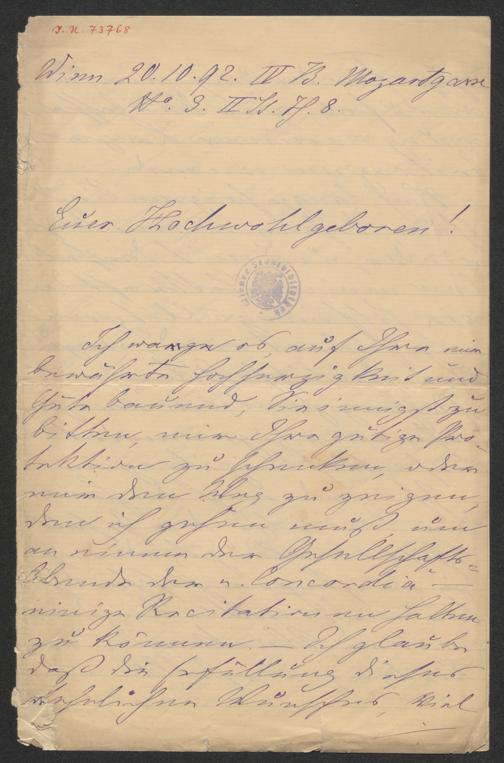 J. N. 73768
Wien 20.10.92. IV B. Mozartgasse
No. 3. II St. Th. 8.
Euer Hochwohlgeboren!
Wiener Stadtbibliothek
Ich wage es, auf Ihre mir
bewährte Hochherzigkeit und
Güte bauend, Sie innigst zu
bitten, mir Ihre gütige Pro-
tektion zu schenken, oder
mir den Weg zu zeigen,
den ich gehen muß, um
an einem der Gesellschafts-
Abende der „Concordia“
einige Recitationen halten
zu können. — Ich glaube
daß die Erfüllung dieses
sehnlichen Wunsches, viel